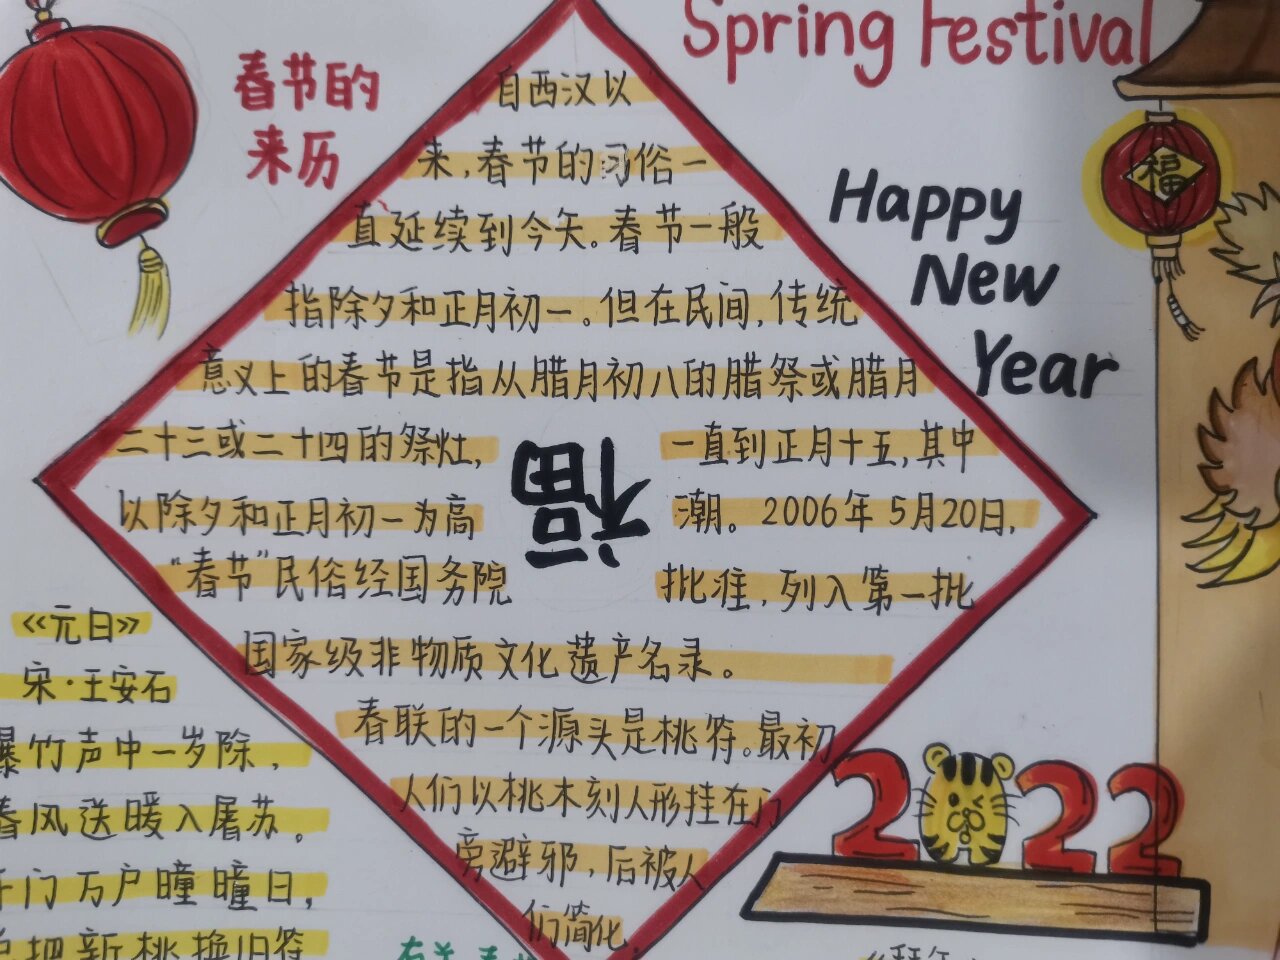 Spring Festival
春节的
来历
自西汉以
来,春节的习俗一
直延续到今天。春节一般
指除夕和正月初一。但在民间,传统
意义上的春节是指从腊月初八的腊祭或腊月
二十三或二十四的祭灶, 一直到正月十五,其中
以除夕和正月初一为高 潮。2006年5月20日,
“春节”民俗经国务院 批准,列入第一批
国家级非物质文化遗产名录。
春联的一个源头是桃符。最初
人们以桃木刻人形挂在门
旁避邪,后被人
们简化,
福
Happy
New
Year
福
《元日》
宋·王安石
爆竹声中一岁除,
春风送暖入屠苏。
千门万户瞳瞳日,
总把新桃换旧符
2022